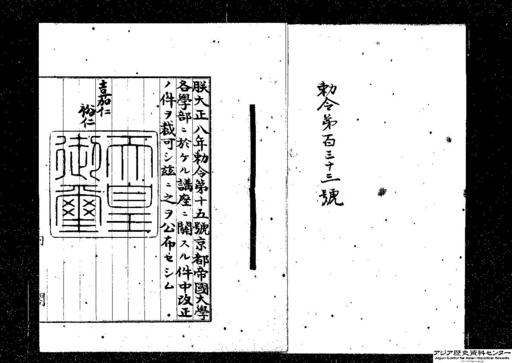 勅令第百三十三號
朕大正八年勅令第十五號京都帝國大學
各學部ニ於ケル講座ニ關スル件中改正
ノ件ヲ裁可シ茲ニ之ヲ公布セシム
嘉仁
裕仁
天皇
御璽
アジア歴史資料センター
Japan Center for Asian Historical Records